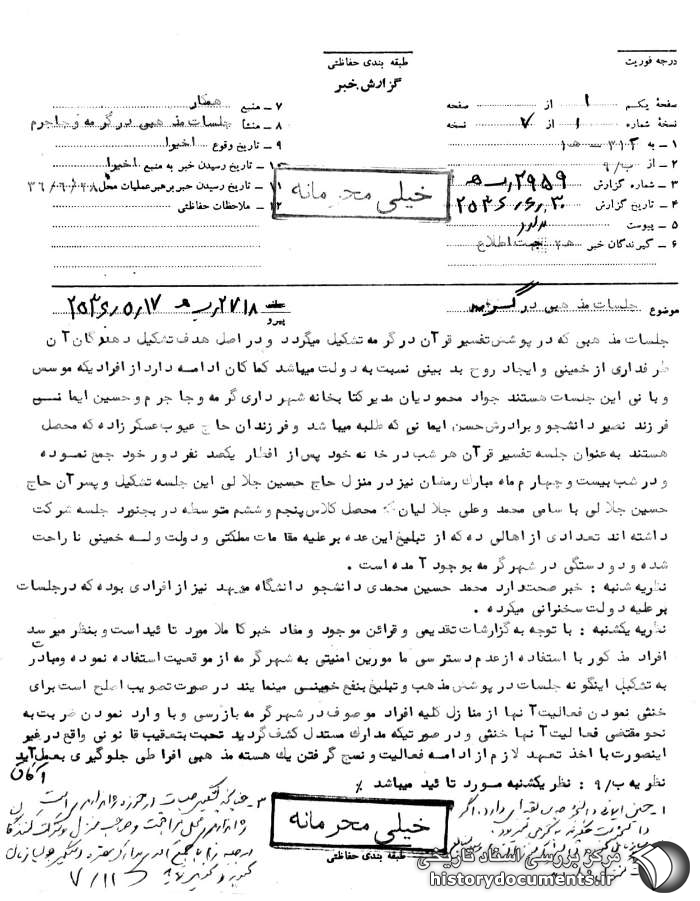 درجه فوریت
طبقه بندی حفاظتی
گزارش خبر
صفحهٔ یکم ۱ از صفحه
نسخهٔ شماره ۱ از ۷ نسخه
۱ ـ به ۳۱۲ ـ ه‍ ۱
۲ ـ از ب/۹
۳ ـ شماره گزارش ۲۹۸۹
۴ ـ تاریخ گزارش ۲۵۳۶/۶/۳۰
۵ ـ پیوست
۶ ـ گیرندگان خبر جهت اطلاع
۷ ـ منبع همکار
۸ ـ منشأ جلسات مذهبی در گرمه و جاجرم
۹ ـ تاریخ وقوع اخیرا
۱۰ ـ تاریخ رسیدن خبر به منبع اخیرا
۱۱ ـ تاریخ رسیدن خبر برهبر عملیات محل ۳۶/۶/۲۸
۱۲ ـ ملاحظات حفاظتی
خیلی محرمانه
موضوع جلسات مذهبی در گرمه
پیرو ۲۷۱۸ ۲۵۳۶/۵/۱۷
جلسات مذهبی که در پوشش تفسیر قرآن در گرمه تشکیل میگردد و در اصل هدف تشکیل دهندگان آن
طرفداری از خمینی و ایجاد روح بد بینی نسبت به دولت میباشد کماکان ادامه دارد از افرادیکه موسس
و بانی این جلسات هستند جواد محمودیان مدیر کتابخانه شهرداری گرمه و جاجرم و حسین ایمانی
فرزند نصیر دانشجو و برادرش حسن ایمانی که طلبه میباشد و فرزندان حاج عیوب عسکرزاده که محصل
هستند به عنوان جلسه تفسیر قرآن هر شب در خانه خود پس از افطار یکصد نفر دور خود جمع نموده
و در شب بیست و چهارم ماه مبارک رمضان نیز در منزل حاج حسین جلالی این جلسه تشکیل و پسر آن حاج
حسین جلالی با سامی محمد و علی جلالیان محصل کلاس پنجم و ششم متوسطه در بجنورد جلسه شرکت
داشته اند تعدادی از اهالی ده که از تبلیغ این عده بر علیه مقامات مملکتی و دولت و له خمینی ناراحت
شده و دو دستگی در شهر گرمه بوجود آمده است .
نظریه شنبه : خبر صحت دارد محمد حسین محمدی دانشجو دانشگاه مشهد نیز از افرادی بوده که در جلسات
بر علیه دولت سخنرانی میکرده .
نظریه یکشنبه : با توجه به گزارشات تقدیمی و قرائن موجود و مفاد خبر کاملا مورد تائید است و بنظر میرسد
افراد مذکور با استفاده از عدم دسترسی مامورین امنیتی به شهر گرمه از موقعیت استفاده نموده و مبادرت
به تشکیل اینگونه جلسات در پوشش مذهب و تبلیغ بنفع خمینی مینمایند در صورت تصویب اصلح است برای
خنثی نمودن فعالیت آنها از منازل کلیه افراد موصوف در شهر گرمه بازرسی و با وارد نمودن ضربت به
نحو مقتضی فعالیت آنها خنثی و در صورتیکه مدارک مستدل کشف گردید تحت تعقیب قانونی واقع در غیر
اینصورت با اخذ تعهد لازم از ادامه فعالیت و نسج گرفتن یک هسته مذهبی افراطی جلوگیری بعمل آید
نظریه ب/۹ : نظر یکشنبه مورد تائید میباشد
خیلی محرمانه
طبقه بندی حفاظتی
۷/۱۱
مرکز بررسی اسناد تاریخی
historydocuments.ir